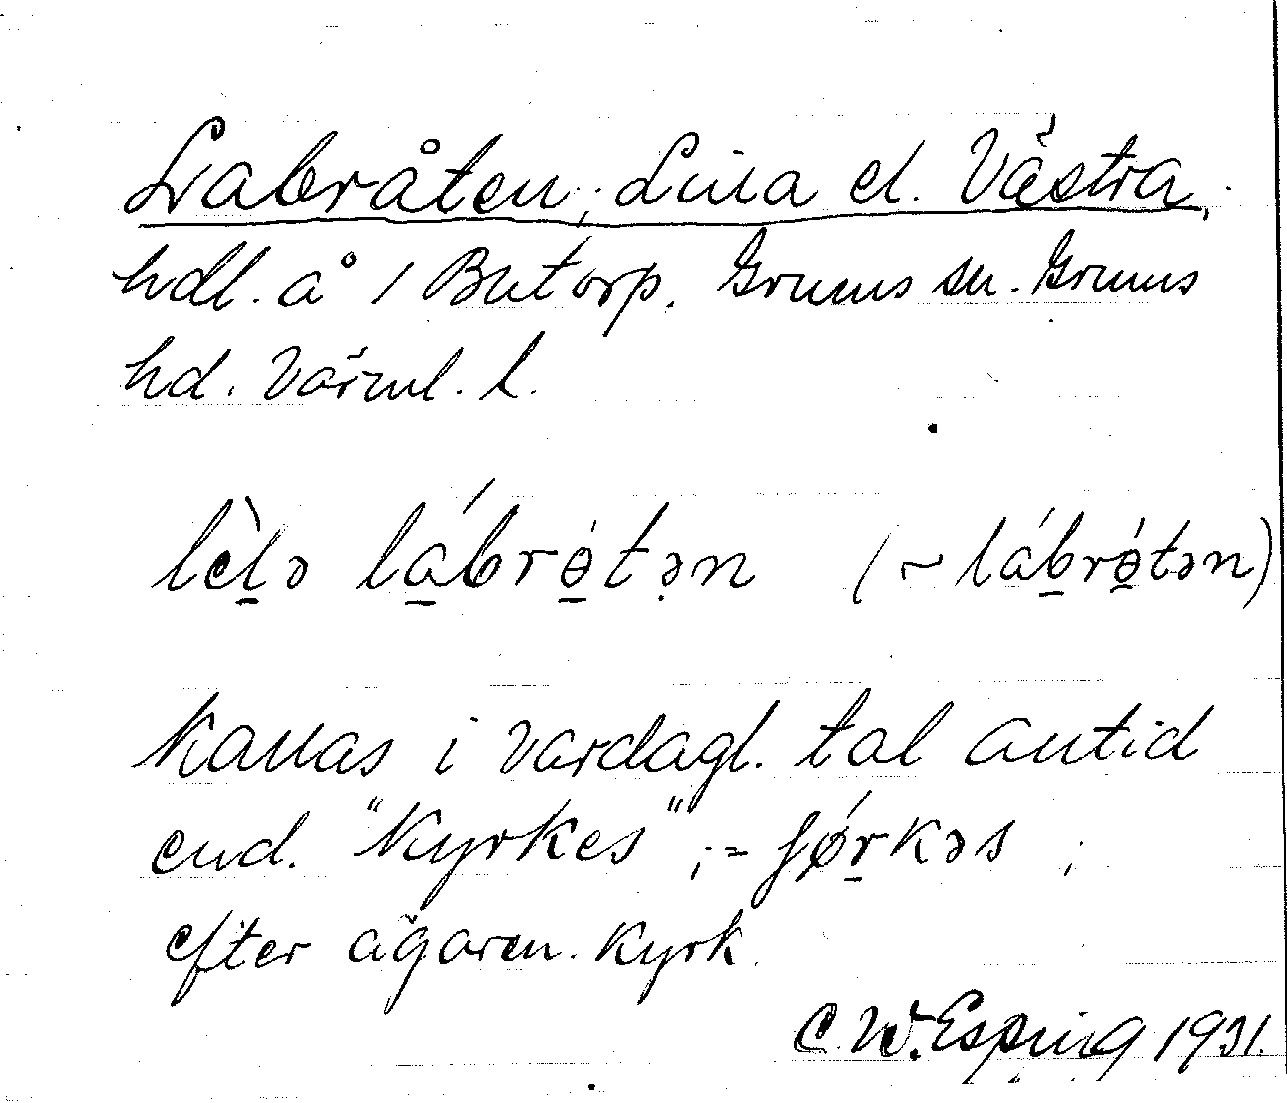 Labråten, Lilla el. Västra,
hdl. å 1 Butorp. Grums sn. Grums
hd. Värml. l.
lèl̠ə lá̠brө̠́tən (~ láb̠rө̠́tən)
Kallas i vardagl. tal alltid
end. "Kyrkes" ;- ʃǿr̠kəs ;
efter ägaren. Kyrk.
C. W. Esping 1931.